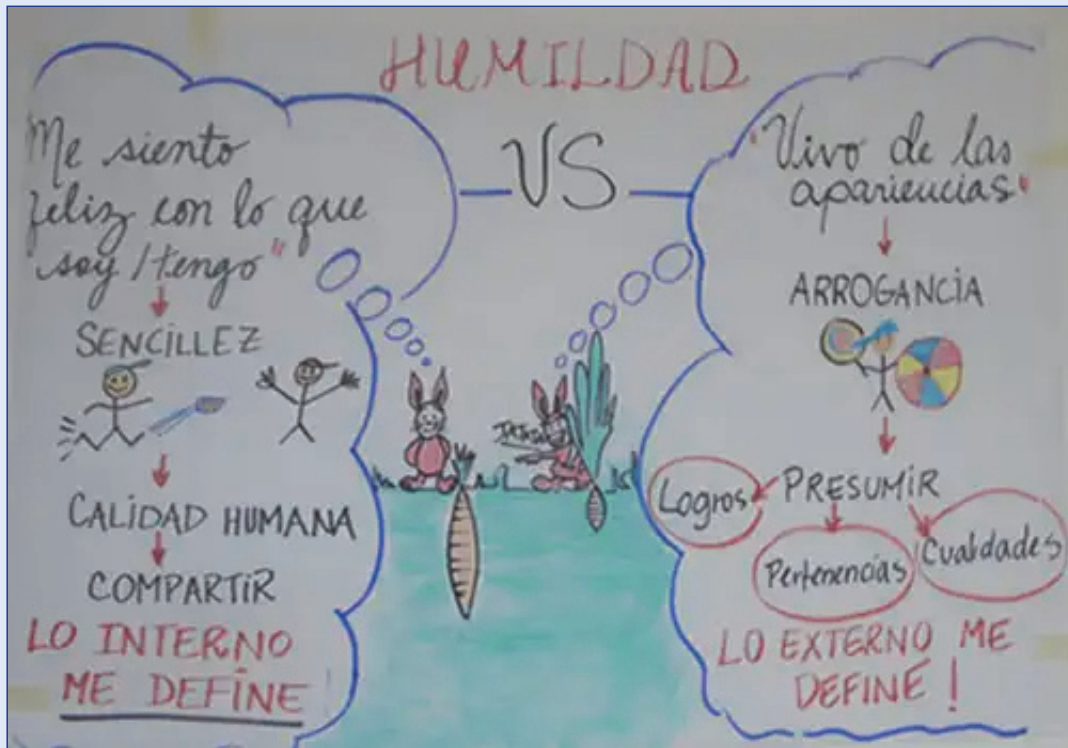 HUMILDAD
VS
Me siento
feliz con lo que
soy / tengo"
SENCILLEZ
CALIDAD HUMANA
COMPARTIR
LO INTERNO
ME DEFINE
"Vivo de las
apariencias"
ARROGANCIA
PRESUMIR
Logros
Pertenencias
Cualdades
LO EXTERNO ME
DEFINE !